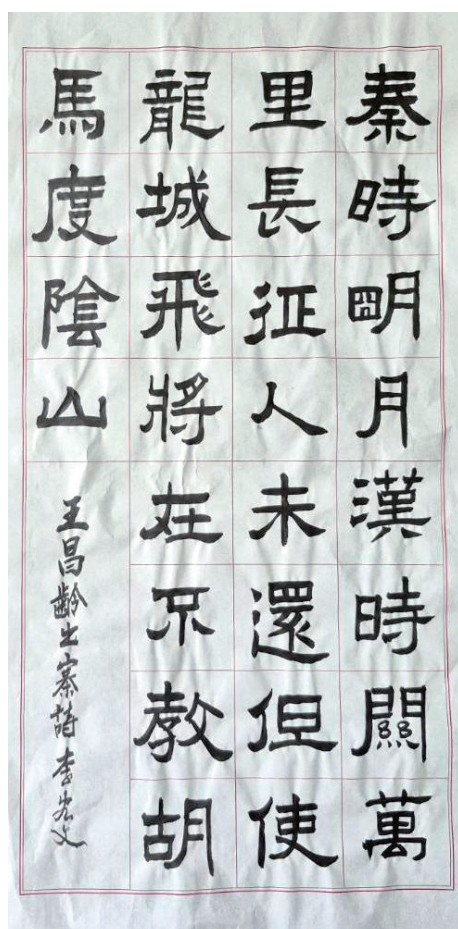 秦時朙月漢時關萬
里長征人未還但使
龍城飛將在不教胡
馬度陰山
王昌齡出寨詩李宏文